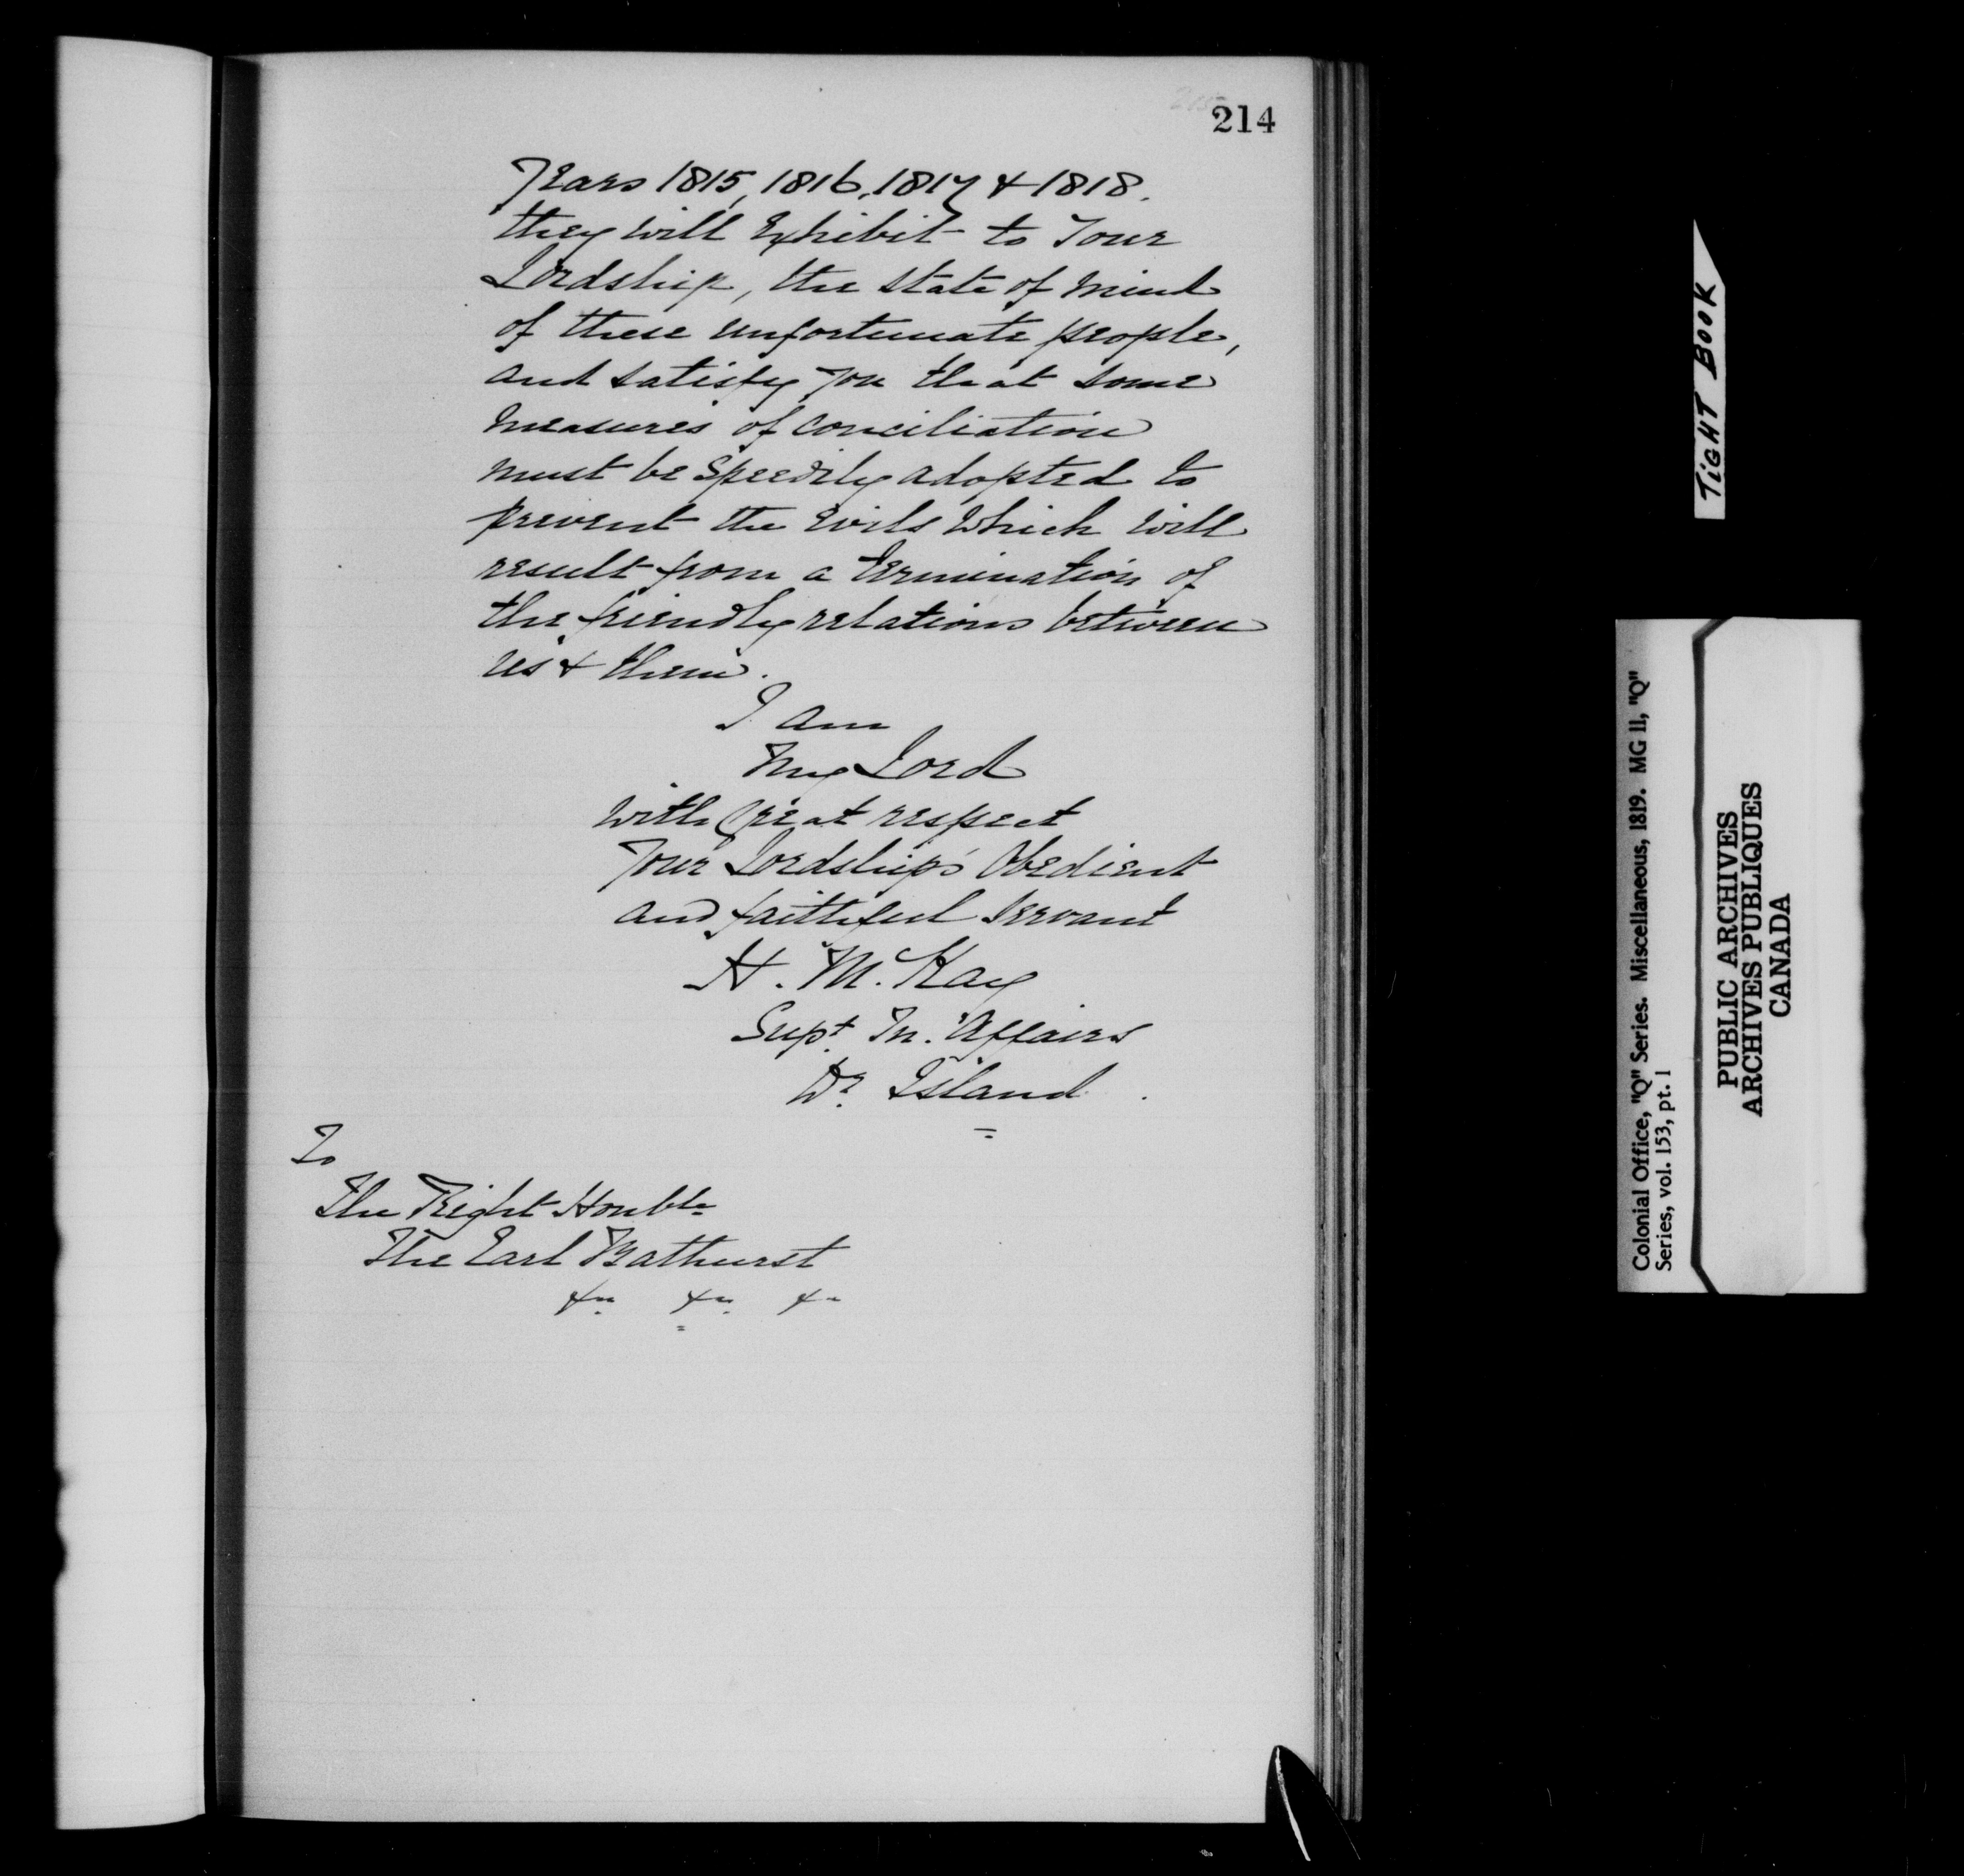 214
Years 1815, 1816, 1817 & 1818.
they will Exhibit to Your
Lordship, the state of mind
of these unfortunate people,
and satisfy you that some
measures of conciliation
must be speedily adopted to
prevent the evils which will
result from a termination of
the friendly relations between
us & them.
I am
My Lord
with great respect
Your Lordship's Obedient
and faithful servant
W. McKay
Supt. In. Affairs
Dr. Island.
To
The Right Honble
The Earl Bathurst
&c &c &c
TiGHT BOOK
Colonial Office, "Q" Series. Miscellaneous, 1819. MG 11, "Q"
Series, vol. 153, pt. 1
PUBLIC ARCHIVES
ARCHIVES PUBLIQUES
CANADA